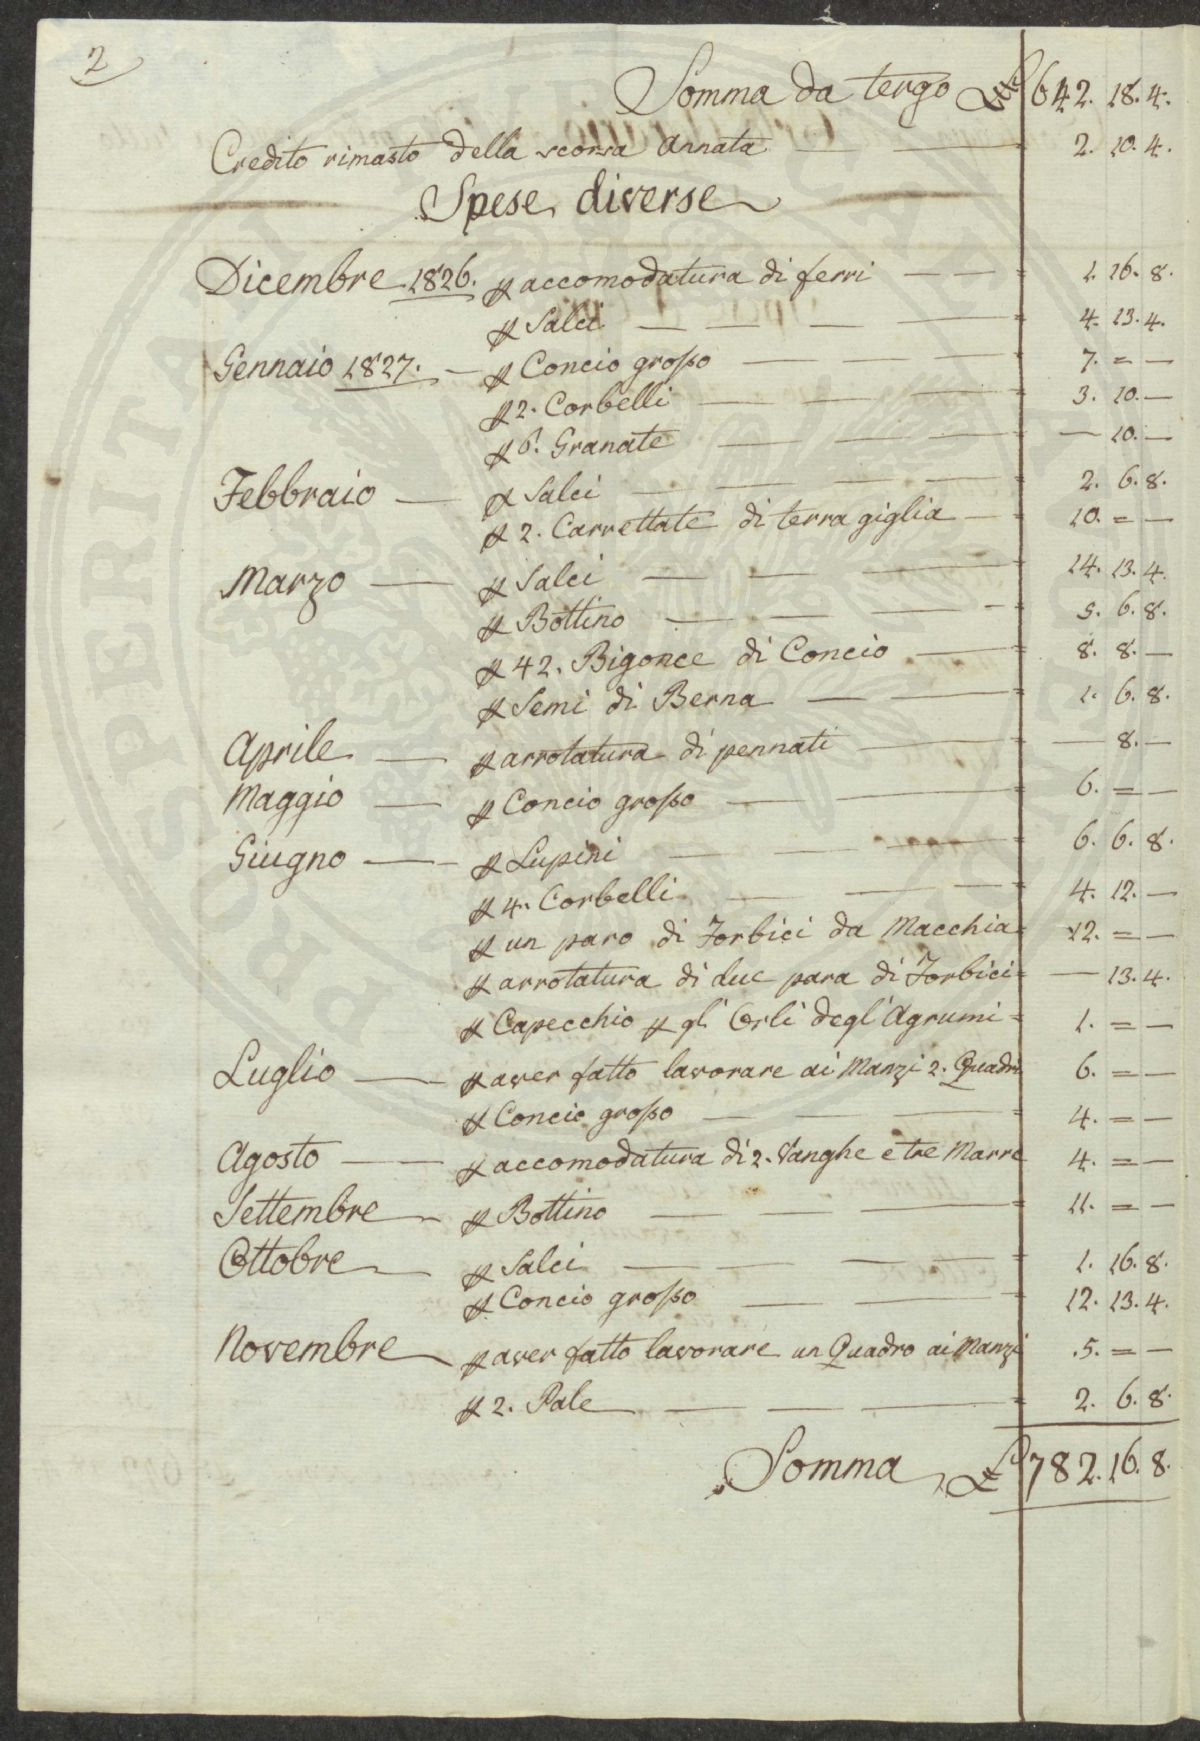 2
Somma da tergo £ 642. 18. 4.
Credito rimasto della scorsa Annata 2. 10. 4.
Spese diverse
Dicembre 1826. p accomodatura di ferri 1. 16. 8.
p Salci 4. 13. 4.
Gennaio 1827. p Concio grosso 7. = —
p 2. Corbelli 3. 10. —
p 6. Granate — 10. —
Febbraio p Salci 2. 6. 8.
p 2. Carrettate di terra giglia 10. = —
Marzo p Salci 14. 13. 4.
p Bottino 5. 6. 8.
p 42. Bigonce di Concio 8. 8. —
p Semi di Berna 1. 6. 8.
Aprile p arrotatura di pennati — 8. —
Maggio p Concio grosso 6. = —
Giugno p Lupini 6. 6. 8.
p 4. Corbelli 4. 12. —
p un paro di Forbici da Macchia 12. = —
p arrotatura di due para di Forbici — 13. 4.
p Capecchio p gl' Orli degl'Agrumi 1. = —
Luglio p aver fatto lavorare ai Manzi 2. Quadri 6. = —
p Concio grosso 4. = —
Agosto p accomodatura di 2. Vanghe e tre Marre 4. = —
Settembre p Bottino 11. = —
Ottobre p Salci 1. 16. 8.
p Concio grosso 12. 13. 4.
Novembre p aver fatto lavorare un Quadro ai Manzi 5. = —
p 2. Pale 2. 6. 8.
Somma £ 782. 16. 8.